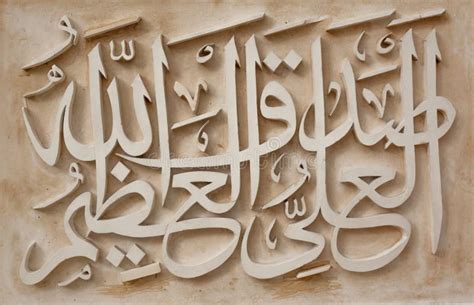 صدق الله
العليّ العظيم